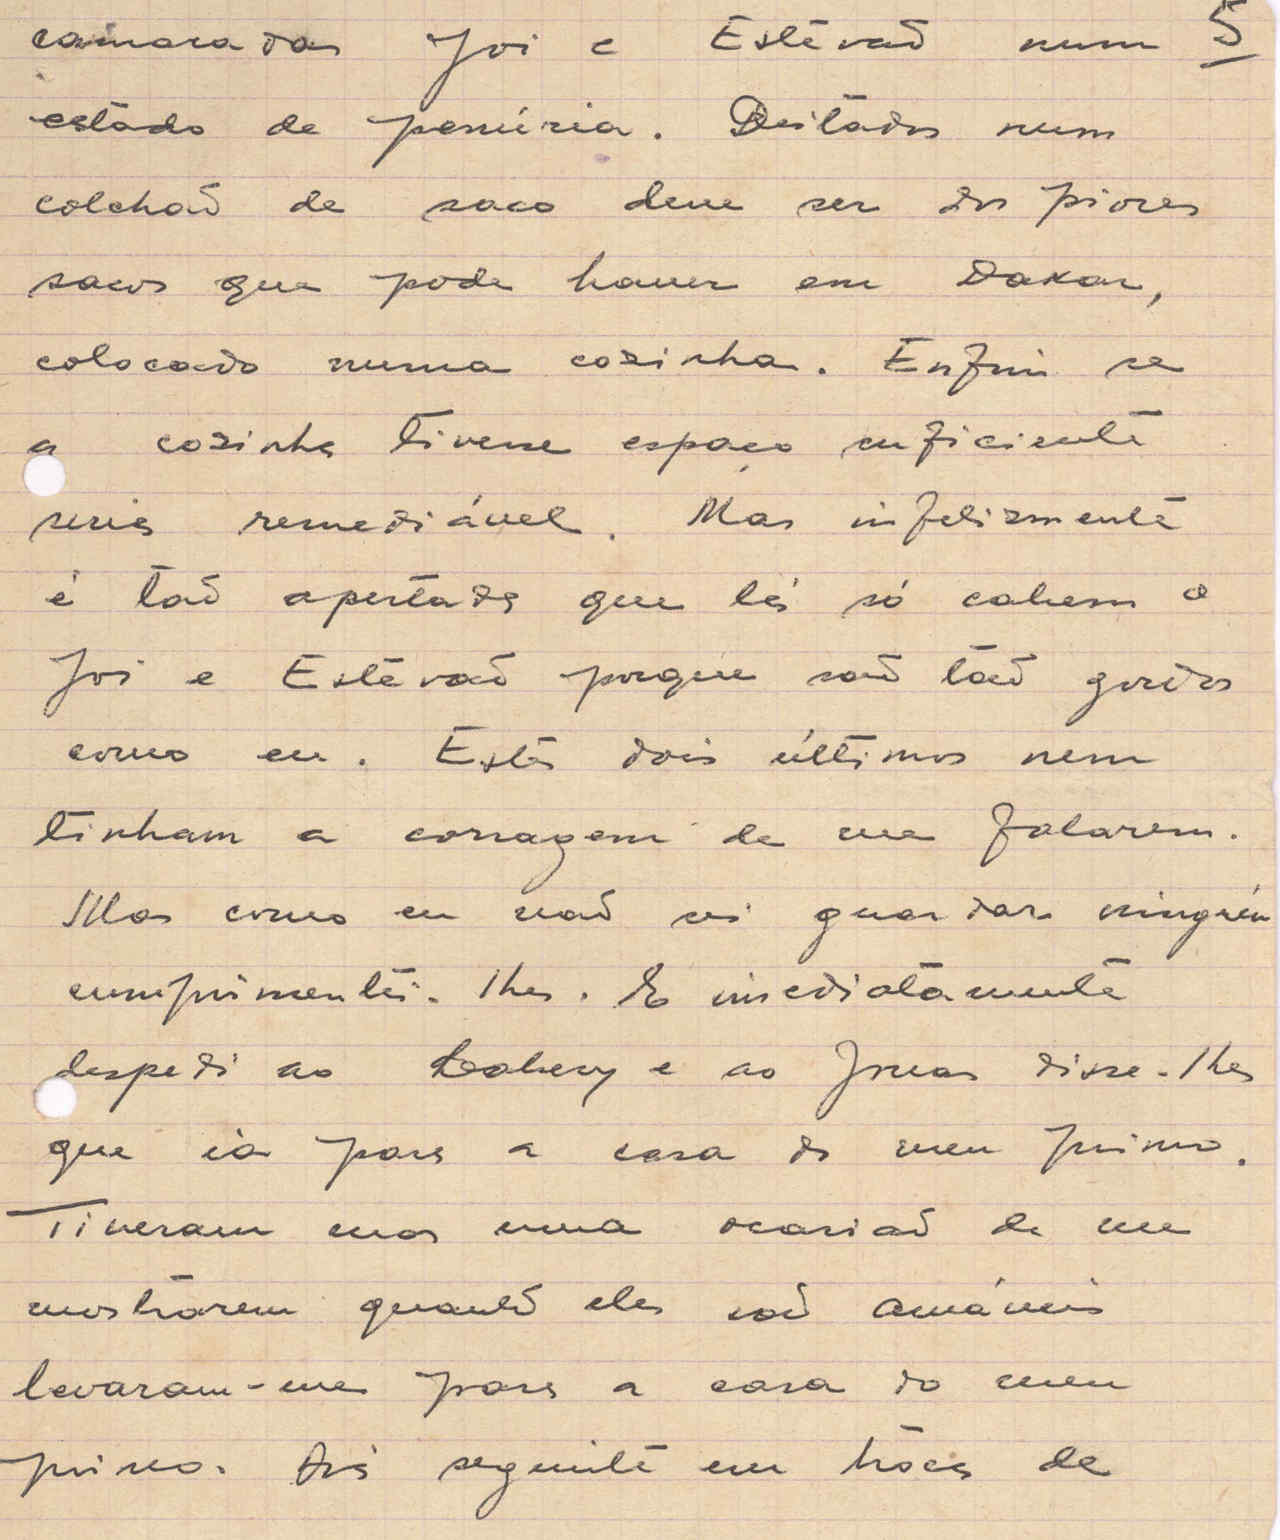 camaradas Joi e Estêvaõ num 5
estado de penúria. Deitados num
colchaõ de saco deve ser dos piores
sacos que pode haver em Dakar,
colocado numa cozinha. Enfim se
a cozinha tivesse espaço suficiente
seria remediável. Mas infelizmente
é taõ apertada que lá só cabem o
Joi e Estêvaõ porque saõ taõ gordos
como eu. Estes dois últimos nem
tinham a corragem de me falarem.
Mas como eu naõ sei guardar ninguém
cumprimentei-lhes. E imediatamente
despedi ao e ao Jonas disse-lhes
que ia para a casa do meu primo.
Tiveram mas uma ocasiaõ de me
mostrarem quanto eles saõ amáveis
levaram-me para a casa do meu
primo. Dia seguinte em troca de